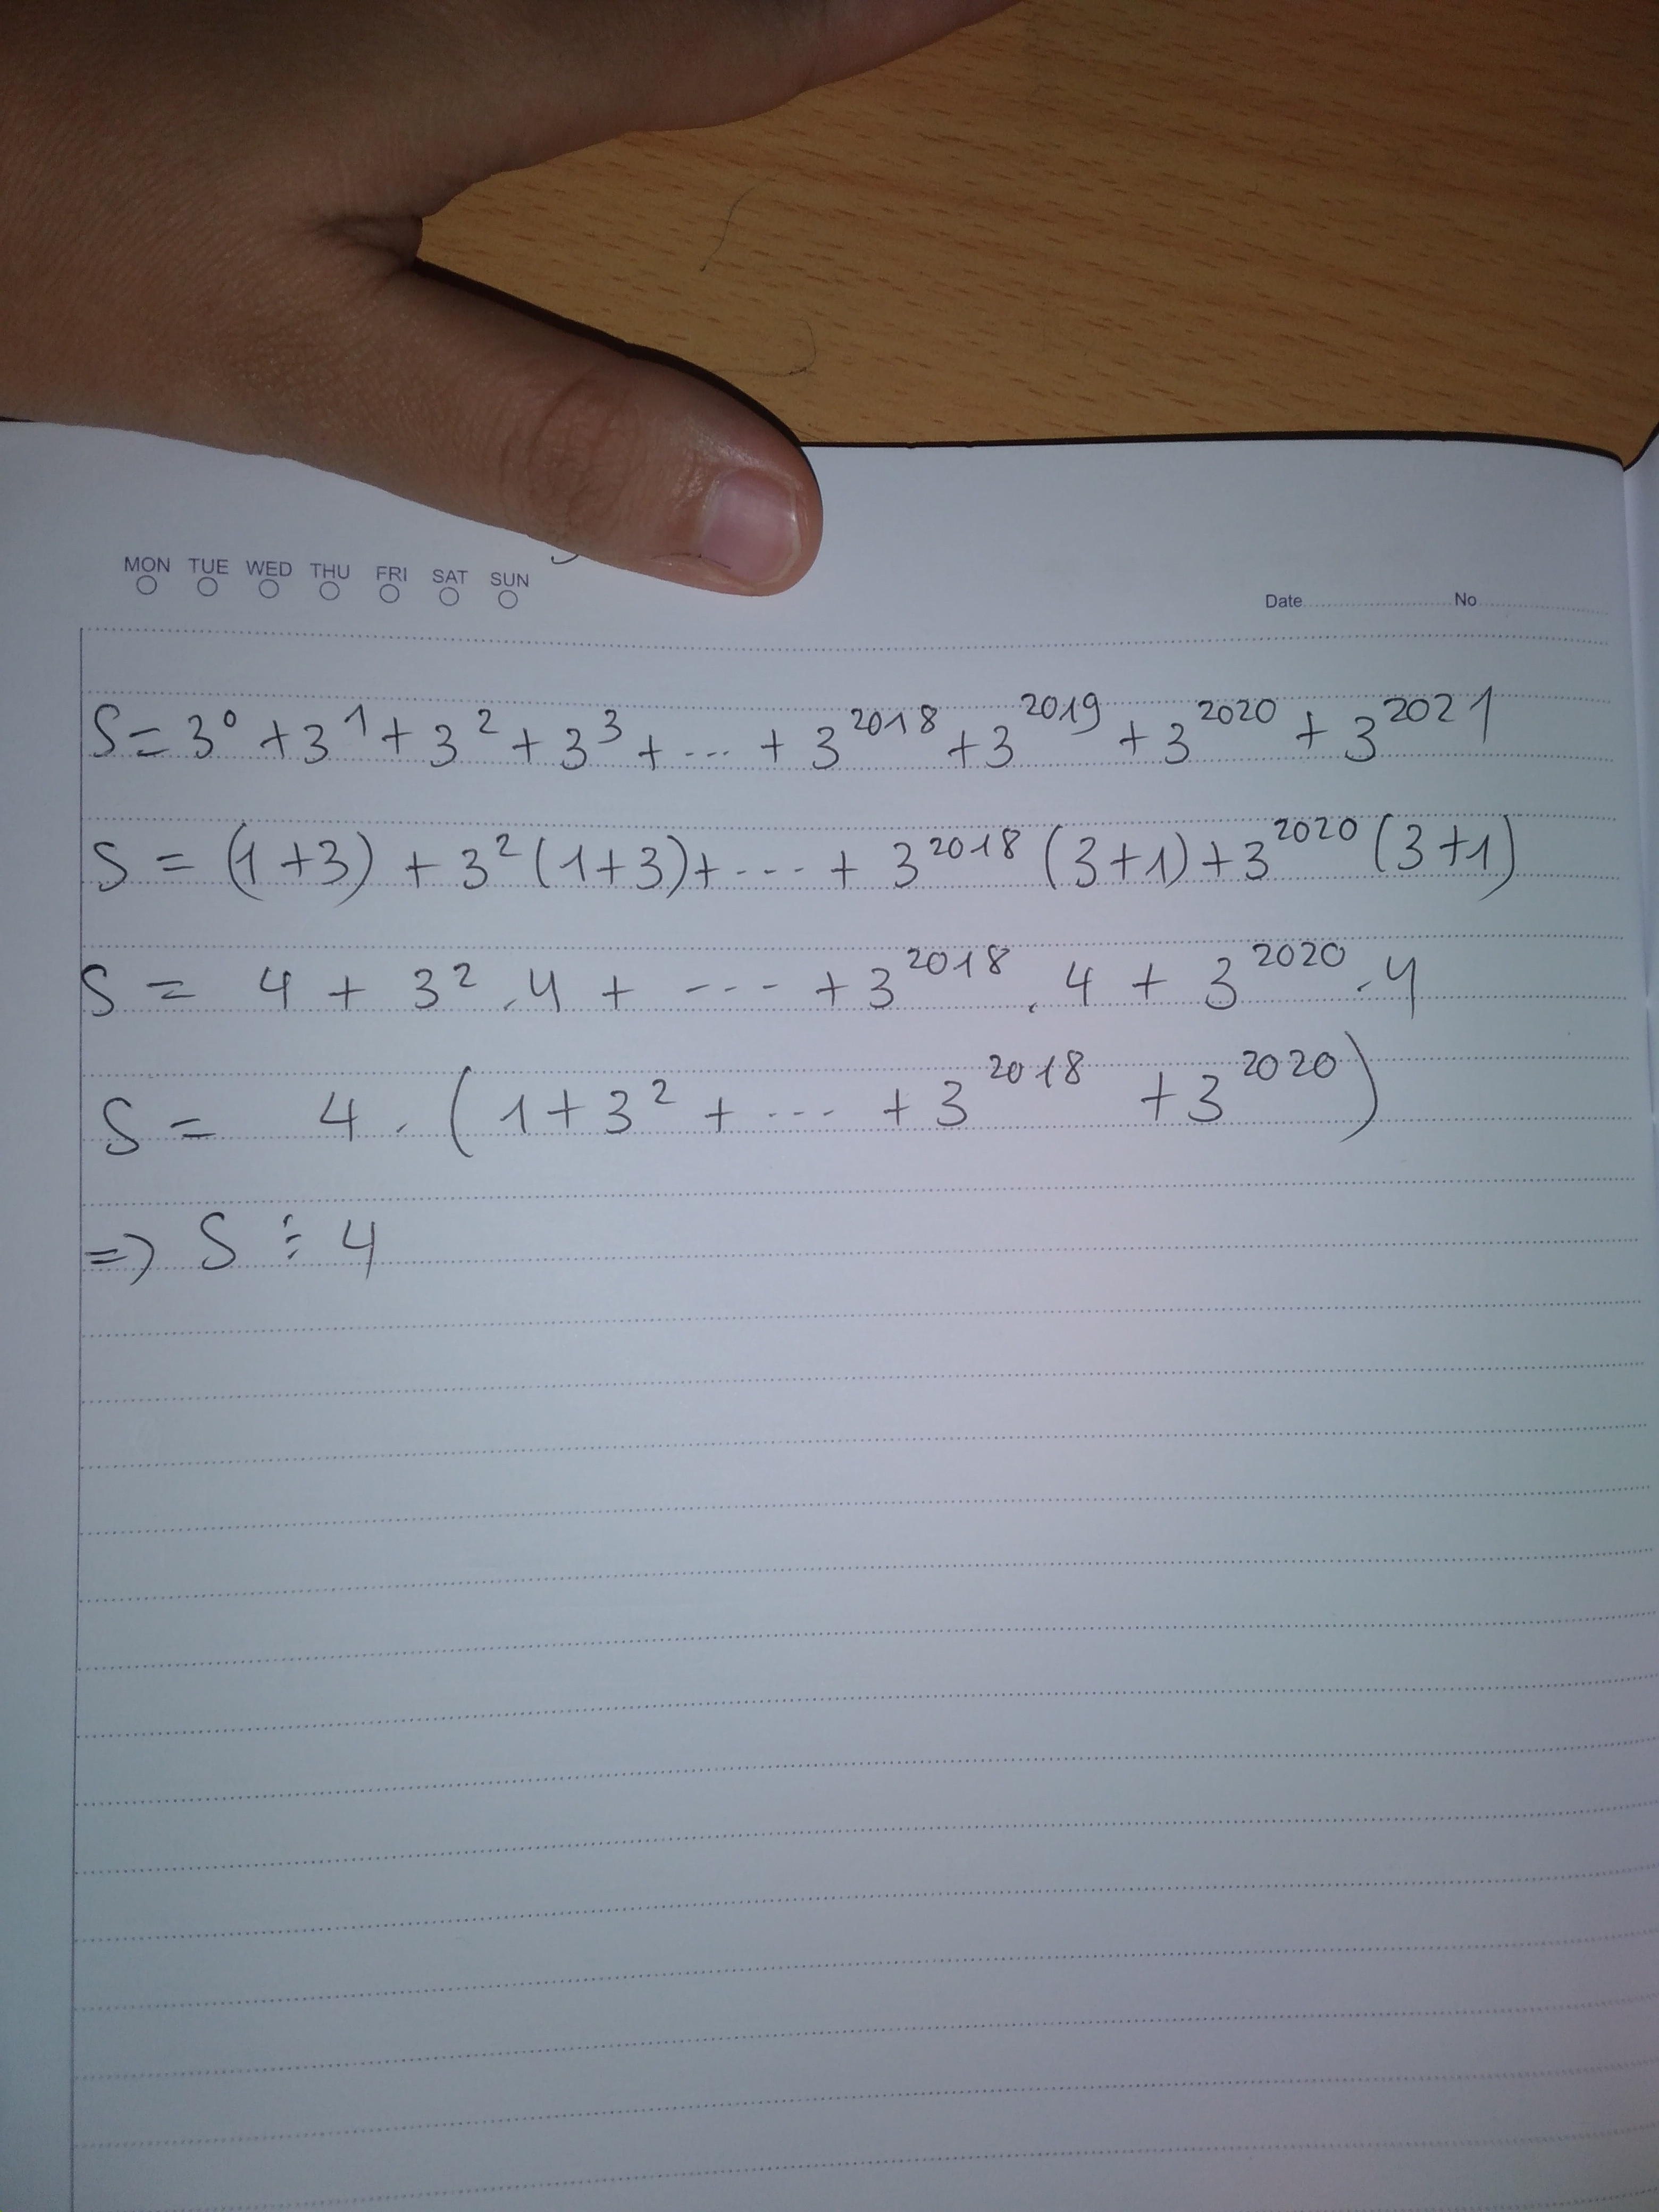 MON TUE WED THU FRI SAT SUN
Date No
S = 3⁰ + 3¹ + 3² + 3³ + ... + 3²⁰¹⁸ + 3²⁰¹⁹ + 3²⁰²⁰ + 3²⁰²¹
S = (1+3) + 3²(1+3) + ... + 3²⁰¹⁸(3+1) + 3²⁰²⁰(3+1)
S = 4 + 3².4 + --- + 3²⁰¹⁸.4 + 3²⁰²⁰.4
S = 4.(1+3² + ... + 3²⁰¹⁸ + 3²⁰²⁰)
=> S ⋮ 4